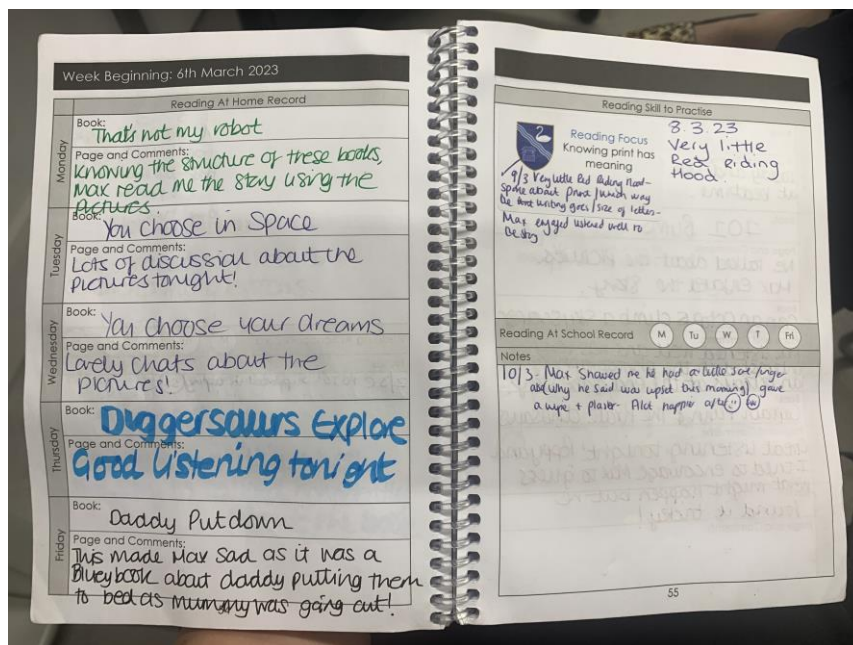 Week Beginning: 6th March 2023
Reading At Home Record
Monday
Book:
That's not my robot
Page and Comments:
Knowing the structure of these books,
Max read me the story using the
pictures.
Tuesday
Book:
You choose in Space
Page and Comments:
Lots of discussion about the
pictures tonight!
Wednesday
Book:
You choose your dreams
Page and Comments:
Lovely chats about the
pictures!
Thursday
Book:
Diggersaurs Explore
Page and Comments:
Good listening tonight
Friday
Book:
Daddy Putdown
Page and Comments:
This made Max sad as it was a
Bluey book about daddy putting them
to bed as mummy was going out!
Reading Skill to Practise
Reading Focus
Knowing print has
meaning
8.3.23
Very little
Red Riding
Hood.
9/3 Very little Red Riding Hood-
spoke about print/which way
writing goes/size of letters-
Max engaged listened well to
the story
Reading At School Record
M
Tu
W
T
Fri
Notes
10/3- Max showed me he had a little sore finger
and why he said was upset this morning) gave
a wipe + plaster. Alot happier after
55